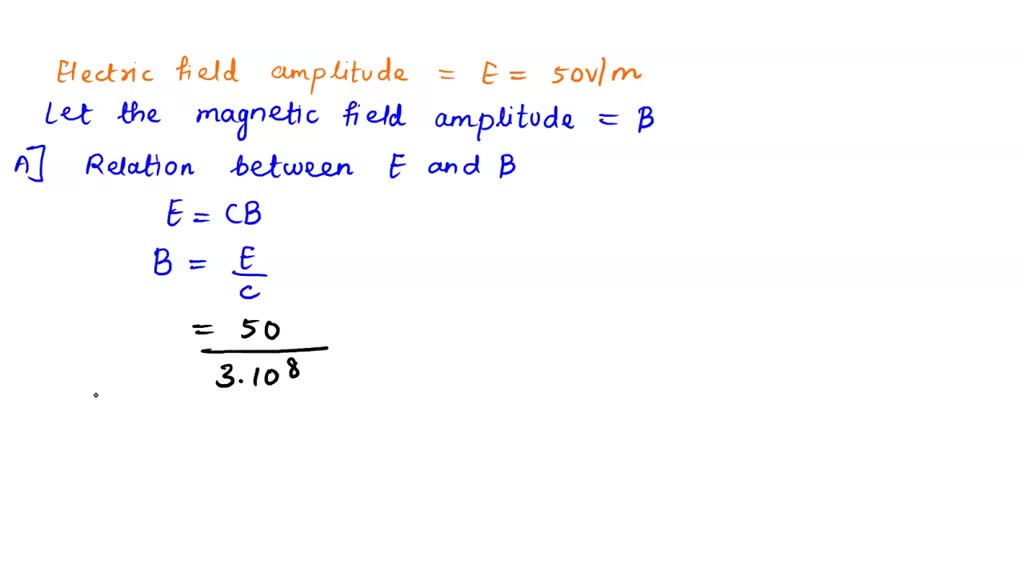 Electric field amplitude = E = 50V/m
Let the magnetic field amplitude = B
A] Relation between E and B
E = CB
B = E/C
= 50/3.10⁸